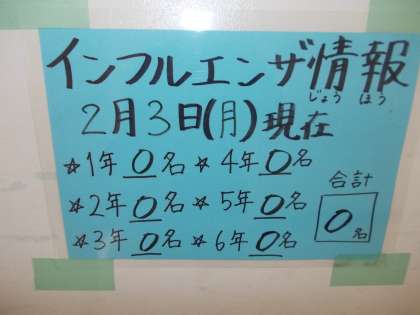 インフルエンザ情報
じょうほう
2月3日(月)現在
☆1年 0名 ☆4年 0名
☆2年 0名 ☆5年 0名
☆3年 0名 ☆6年 0名
合計
0名